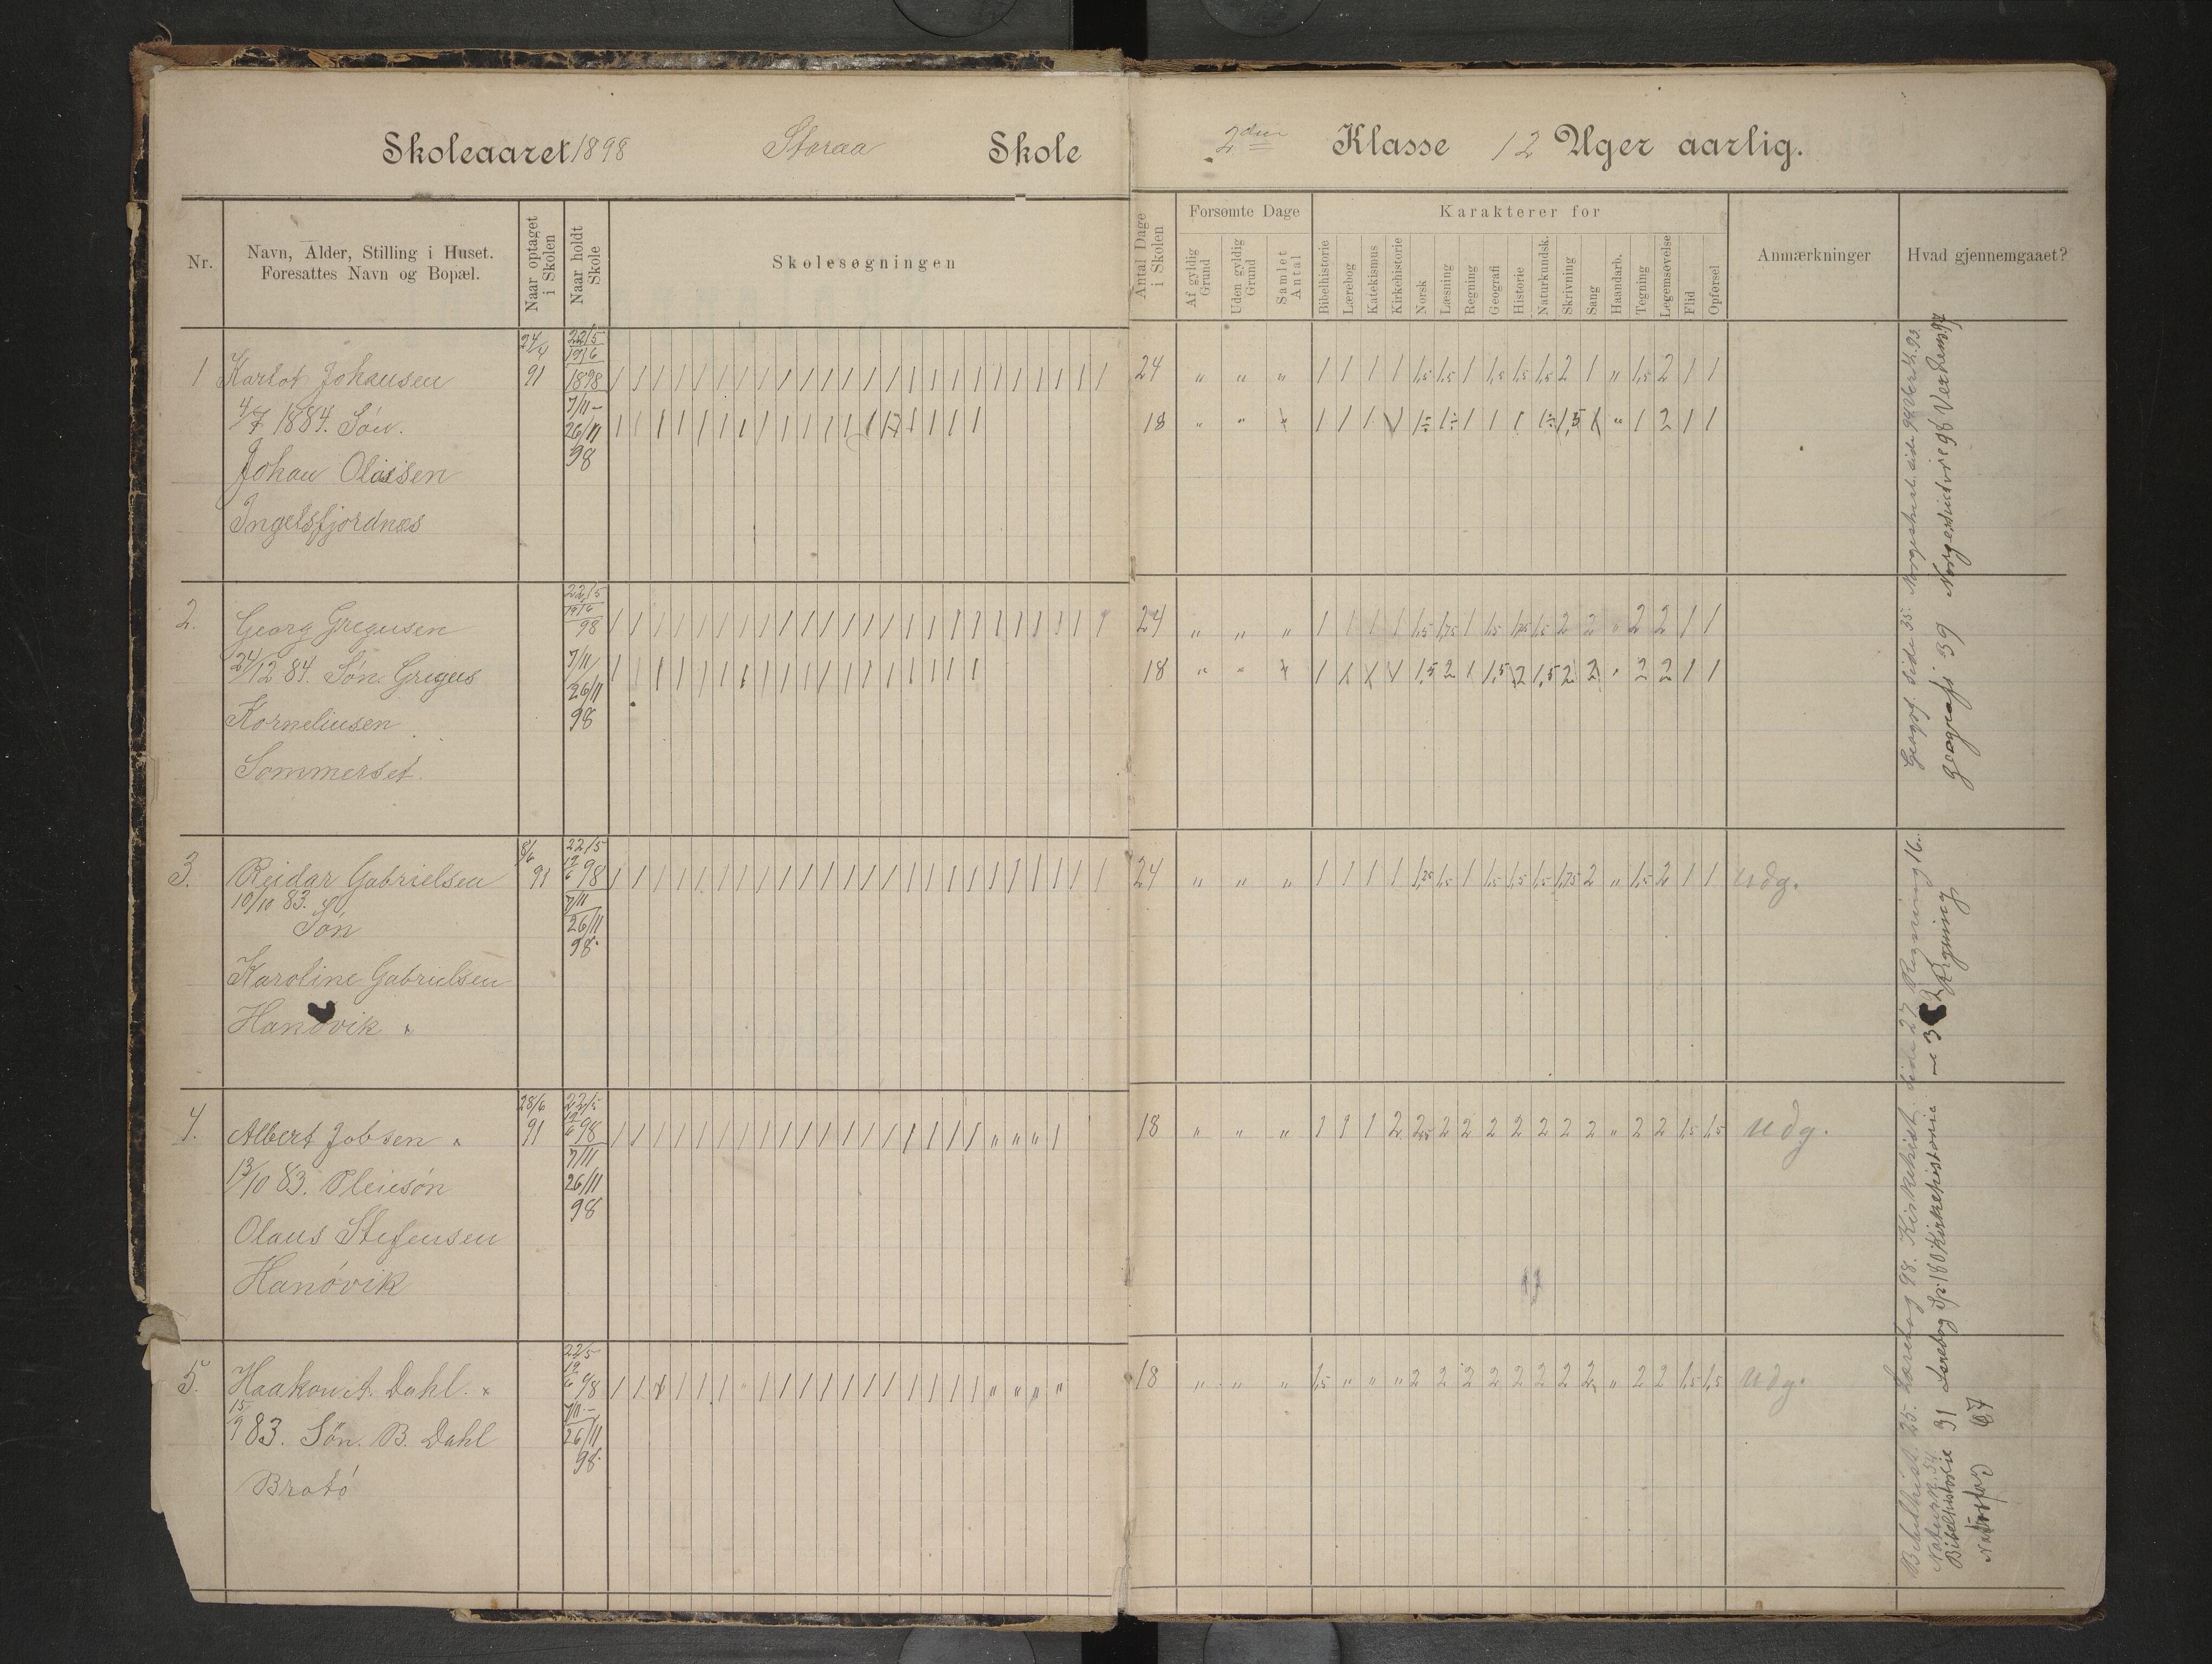 Skoleaaret 1898 Storaa Skole 2den Klasse 12 Uger aarlig.
Nr. Navn, Alder, Stilling i Huset. Foresattes Navn og Bopæl. Naar optaget i Skolen Naar holdt Skole Skolesøgningen Antal Dage i Skolen Forsømte Dage Af gyldig Grund Uden gyldig Grund Samlet Antal Karakterer for Bibelhistorie Lærebog Katekismus Kirkehistorie Norsk Læsning Regning Geografi Historie Naturkundsk. Skrivning Sang Haandarb. Tegning Legemsøvelse Flid Opførsel Anmærkninger Hvad gjennemgaaet?
24/4 22/5 19/6
1 Karlot Johansen 91 1898 / / / / / / / / / / / / / / / / / / / / / / / / 24 " " " 1 1 1 1 1,5 1,5 1 1,5 1,5 1,5 2 1 " 1,5 2 1 1
4/7 1884. Søn. 7/11 - 26/11 98 18 " " 1 1 1 1 1 1 1 1 1,5 " 1 2 1 1
Johan Olaisen
Ingelsfjordnes
22/5 19/6
2. Georg Gregusen 98 / / / / / / / / / / / / / / / / / / / / / / / / 24 " " " 1 1 1 1 1,5 1,75 1 1,5 1,75 1,5 2 2 " 2 2 1 1
24/12 84. Søn. Gregus 7/11 26/11 98 18 " " 1 1,5 2 1 1,5 2 1,5 2 2 " 2 2 1 1
Korneliusen
Sommerset.
8/6 22/5 19/6
3. Reidar Gabrielsen 91 98 / / / / / / / / / / / / / / / / / / / / / / / / 24 " " " 1 1 1 1 1,25 1,5 1 1,5 1,5 1,5 1,75 2 " 1,5 2 1 1 Udg.
10/10 83. 7/11
Søn 26/11 98
Karoline Gabrielsen
Hanøvik
28/6 22/5 19/6
4. Albert Jobsen 91 98 / / / / / / / / / / / / / / / / / / " " " / 18 " " " 1 1 1 2 2 2 2 2 2 2 2 " 2 2 1,5 1,5 Udg.
13/10 83. Pleiesøn 7/11 26/11
Olaus Stefensen 98
Hanøvik
22/5 19/6
5. Haakon A. Dahl. 98 18 " " " 1,5 " " " 2 2 2 2 2 2 2 2 " 2 2 1,5 1,5 Udg.
15/9 83. Søn. B. Dahl 7/11 - 26/11 98
Brotø
Bibelhist. 25. Lærebog 98. Kirkehist. side 27 Regning 16. Geogrf. side 35.
Naturk. 54 Lærebog sp. 180 Kirkehistorie Regning
Bibelhistorie 31 geografi 39 Norgeshistorie 98 Verdens 97
67